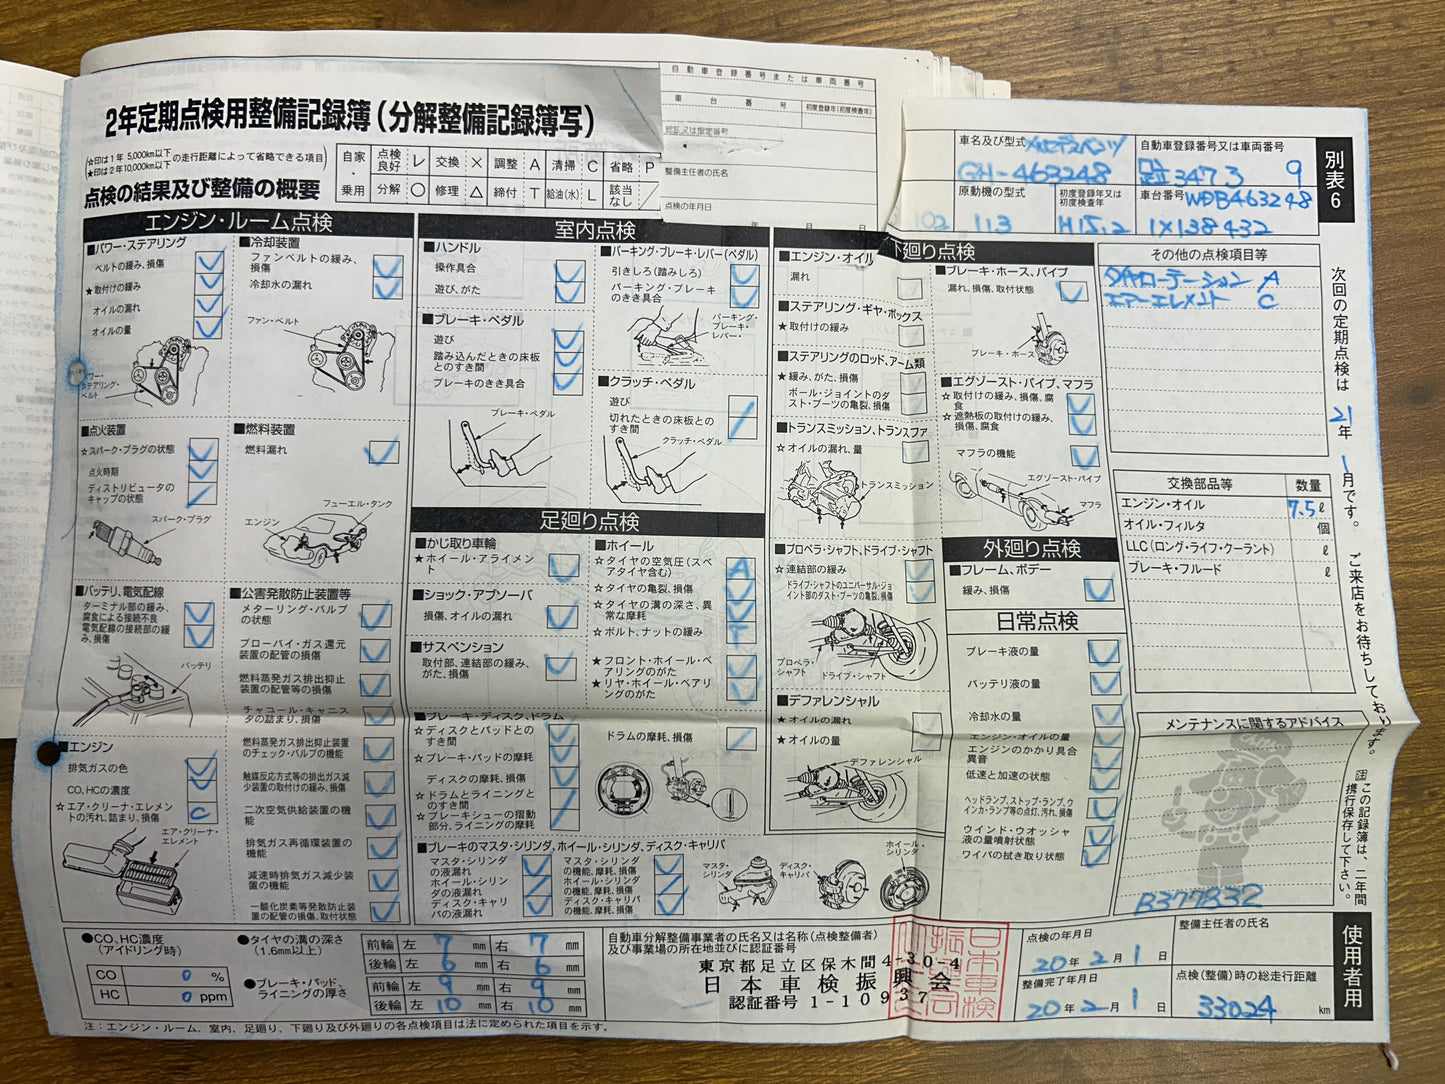 2年定期点検用整備記録簿(分解整備記録簿写)
☆印は1年 5,000km以下
★印は2年10,000km以下 の走行距離によって省略できる項目
点検の結果及び整備の概要
自家・乗用
点検良好 レ 交換 × 調整 A 清掃 C 省略 P
分解 ○ 修理 △ 締付 T 給油(水) L 該当なし /
自動車登録番号または車両番号
車台番号
初度登録年(初度検査年)
認証又は指定番号
整備主任者の氏名
点検の年月日
年 月 日
車名及び型式 メルセデスベンツ
GH-463248
自動車登録番号又は車両番号
347 9
原動機の型式
113
初度登録年又は初度検査年
H15.2
車台番号 WDB463248
1X138432
102
別表6
エンジン・ルーム点検
■パワー・ステアリング
ベルトの緩み、損傷
★取付けの緩み
オイルの漏れ
オイルの量
パワー・ステアリング・ベルト
■冷却装置
ファンベルトの緩み、損傷
冷却水の漏れ
ファン・ベルト
■点火装置
☆スパーク・プラグの状態
点火時期
ディストリビュータのキャップの状態
スパーク・プラグ
■燃料装置
燃料漏れ
フューエル・タンク
エンジン
■バッテリ、電気配線
ターミナル部の緩み、腐食による接続不良
電気配線の接続部の緩み、損傷
バッテリ
■公害発散防止装置等
メターリング・バルブの状態
ブローバイ・ガス還元装置の配管の損傷
燃料蒸発ガス排出抑止装置の配管等の損傷
チャコール・キャニスタの詰まり、損傷
燃料蒸発ガス排出抑止装置のチェック・バルブの機能
触媒反応方式等の排出ガス減少装置の取付けの緩み、損傷
二次空気供給装置の機能
排気ガス再循環装置の機能
減速時排気ガス減少装置の機能
一酸化炭素等発散防止装置の配管の損傷、取付状態
■エンジン
排気ガスの色
CO、HCの濃度
☆エア・クリーナ・エレメントの汚れ、詰まり、損傷 C
エア・クリーナ・エレメント
室内点検
■ハンドル
操作具合
遊び、がた
■ブレーキ・ペダル
遊び
踏み込んだときの床板とのすき間
ブレーキのきき具合
ブレーキ・ペダル
■パーキング・ブレーキ・レバー(ペダル)
引きしろ(踏みしろ)
パーキング・ブレーキのきき具合
パーキング・ブレーキ・レバー
■クラッチ・ペダル
遊び
切れたときの床板とのすき間
クラッチ・ペダル
足廻り点検
■かじ取り車輪
★ホイール・アライメント
■ショック・アブソーバ
損傷、オイルの漏れ
■サスペンション
取付部、連結部の緩み、がた、損傷
■ホイール
☆タイヤの空気圧(スペアタイヤ含む) A
☆タイヤの亀裂、損傷
☆タイヤの溝の深さ、異常な摩耗
☆ボルト、ナットの緩み T
★フロント・ホイール・ベアリングのがた
★リヤ・ホイール・ベアリングのがた
■ブレーキ・ディスク、ドラム
☆ディスクとパッドとのすき間
☆ブレーキ・パッドの摩耗
ディスクの摩耗、損傷
☆ドラムとライニングとのすき間
☆ブレーキシューの摺動部分、ライニングの摩耗
ドラムの摩耗、損傷
■ブレーキのマスタ・シリンダ、ホイール・シリンダ、ディスク・キャリパ
マスタ・シリンダの液漏れ
ホイール・シリンダの液漏れ
ディスク・キャリパの液漏れ
マスタ・シリンダの機能、摩耗、損傷
ホイール・シリンダの機能、摩耗、損傷
ディスク・キャリパの機能、摩耗、損傷
マスタ・シリンダ
ディスク・キャリパ
ホイール・シリンダ
下廻り点検
■エンジン・オイル
漏れ
■ステアリング・ギヤ・ボックス
★取付けの緩み
■ステアリングのロッド、アーム類
★緩み、がた、損傷
ボール・ジョイントのダスト・ブーツの亀裂、損傷
■トランスミッション、トランスファ
☆オイルの漏れ、量
トランスミッション
■プロペラ・シャフト、ドライブ・シャフト
☆連結部の緩み
ドライブ・シャフトのユニバーサル・ジョイント部のダスト・ブーツの亀裂、損傷
プロペラ・シャフト
ドライブ・シャフト
■デファレンシャル
★オイルの漏れ
★オイルの量
デファレンシャル
■ブレーキ・ホース、パイプ
漏れ、損傷、取付状態
ブレーキ・ホース
■エグゾースト・パイプ、マフラ
☆取付けの緩み、損傷、腐食
☆遮熱板の取付けの緩み、損傷、腐食
マフラの機能
エグゾースト・パイプ
マフラ
外廻り点検
■フレーム、ボデー
緩み、損傷
日常点検
ブレーキ液の量
バッテリ液の量
冷却水の量
エンジン・オイルの量
エンジンのかかり具合 異音
低速と加速の状態
ヘッドランプ、ストップ・ランプ、ウインカ・ランプ等の点灯、汚れ、損傷
ウインド・ウオッシャ液の量噴射状態
ワイパの拭き取り状態
その他の点検項目等
タイヤローテーション A
エアーエレメント C
交換部品等 数量
エンジン・オイル 7.5 ℓ
オイル・フィルタ 個
LLC(ロング・ライフ・クーラント) ℓ
ブレーキ・フルード ℓ
メンテナンスに関するアドバイス
B377B32
次回の定期点検は21年1月です。 ご来店をお待ちしております。
注 この記録簿は、二年間携行保存して下さい。
使用者用
●CO、HC濃度(アイドリング時)
CO 0 %
HC 0 ppm
●タイヤの溝の深さ(1.6mm以上)
前輪 左 7 mm 右 7 mm
後輪 左 6 mm 右 6 mm
●ブレーキ・パッド、ライニングの厚さ
前輪 左 9 mm 右 9 mm
後輪 左 10 mm 右 10 mm
自動車分解整備事業者の氏名又は名称(点検整備者)
及び事業場の所在地並びに認証番号
東京都足立区保木間4-30-4
日本車検振興会
認証番号 1-10937
点検の年月日
20年2月1日
整備完了年月日
20年2月1日
整備主任者の氏名
点検(整備)時の総走行距離
33024 km
注:エンジン・ルーム、室内、足廻り、下廻り及び外廻りの各点検項目は法に定められた項目を示す。